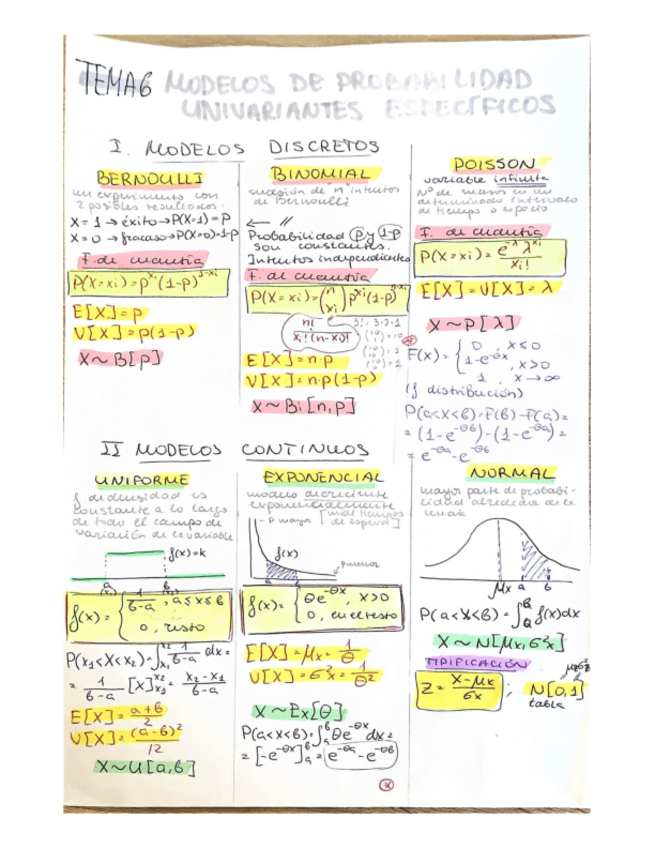 TEMA6 MODELOS DE PROBABILIDAD
UNIVARIANTES ESPECÍFICOS
I. MODELOS DISCRETOS
BERNOULLI
un experimento con
2 posibles resultados.
X=1 → éxito → P(X=1)=P
X=0 → fracaso → P(X=0)=1-P
F. de cuantía
P(X=xi)=p^xi (1-p)^1-xi
E[X]=p
V[X]=p(1-p)
X~B[p]
BINOMIAL
sucesión de n intentos
de Bernoulli
← //
Probabilidad p y 1-p
son constantes.
Intentos independientes
F. de cuantía
P(X=xi)=(n xi) p^xi (1-p)^n-xi
n! / xi!(n-xi)!
3!=3·2·1
E[X]=n·p
V[X]=n·p(1-p)
X~Bi[n,p]
POISSON
variable infinita
Nº de sucesos en un
determinado intervalo
de tiempo o espacio
F. de cuantía
P(X=xi)= e^-λ λ^xi / xi!
E[X]=V[X]=λ
X~P[λ]
F(x)= { 0, x≤0
1-e^-θx, x>0
1, x→∞
(f distribución)
P(a<X<b)=F(b)-F(a)=
=(1-e^-θb)-(1-e^-θa)=
=e^-θa-e^-θb
II MODELOS CONTINUOS
UNIFORME
f de densidad es
constante a lo largo
de todo el campo de
variación de la variable
f(x)=k
a b
(x1) (x2)
f(x)= { 1/b-a, a≤x≤b
0, resto
P(x1<X<x2)=∫x1^x2 1/b-a dx=
= 1/b-a [x]x1^x2 = x2-x1/b-a
E[X]= a+b/2
V[X]= (a-b)²/12
X~U[a,b]
EXPONENCIAL
modelo decreciente
exponencialmente
P mayor
[mide tiempos
de espera]
f(x)
P menor
a b
f(x)= { θe^-θx, x>0
0, en el resto
E[X]=μx= 1/θ
V[X]=σ²x= 1/θ²
X~Ex[θ]
P(a<X<b)=∫a^b θe^-θx dx=
=[-e^-θx]a^b = e^-θa-e^-θb
NORMAL
mayor parte de probabi-
lidad alrededor de la
media
μx a b
P(a<X<b)=∫a^b f(x)dx
X~N[μx,σ²x]
TIPIFICACIÓN
Z= X-μx/σx ; N[0,1]
tabla